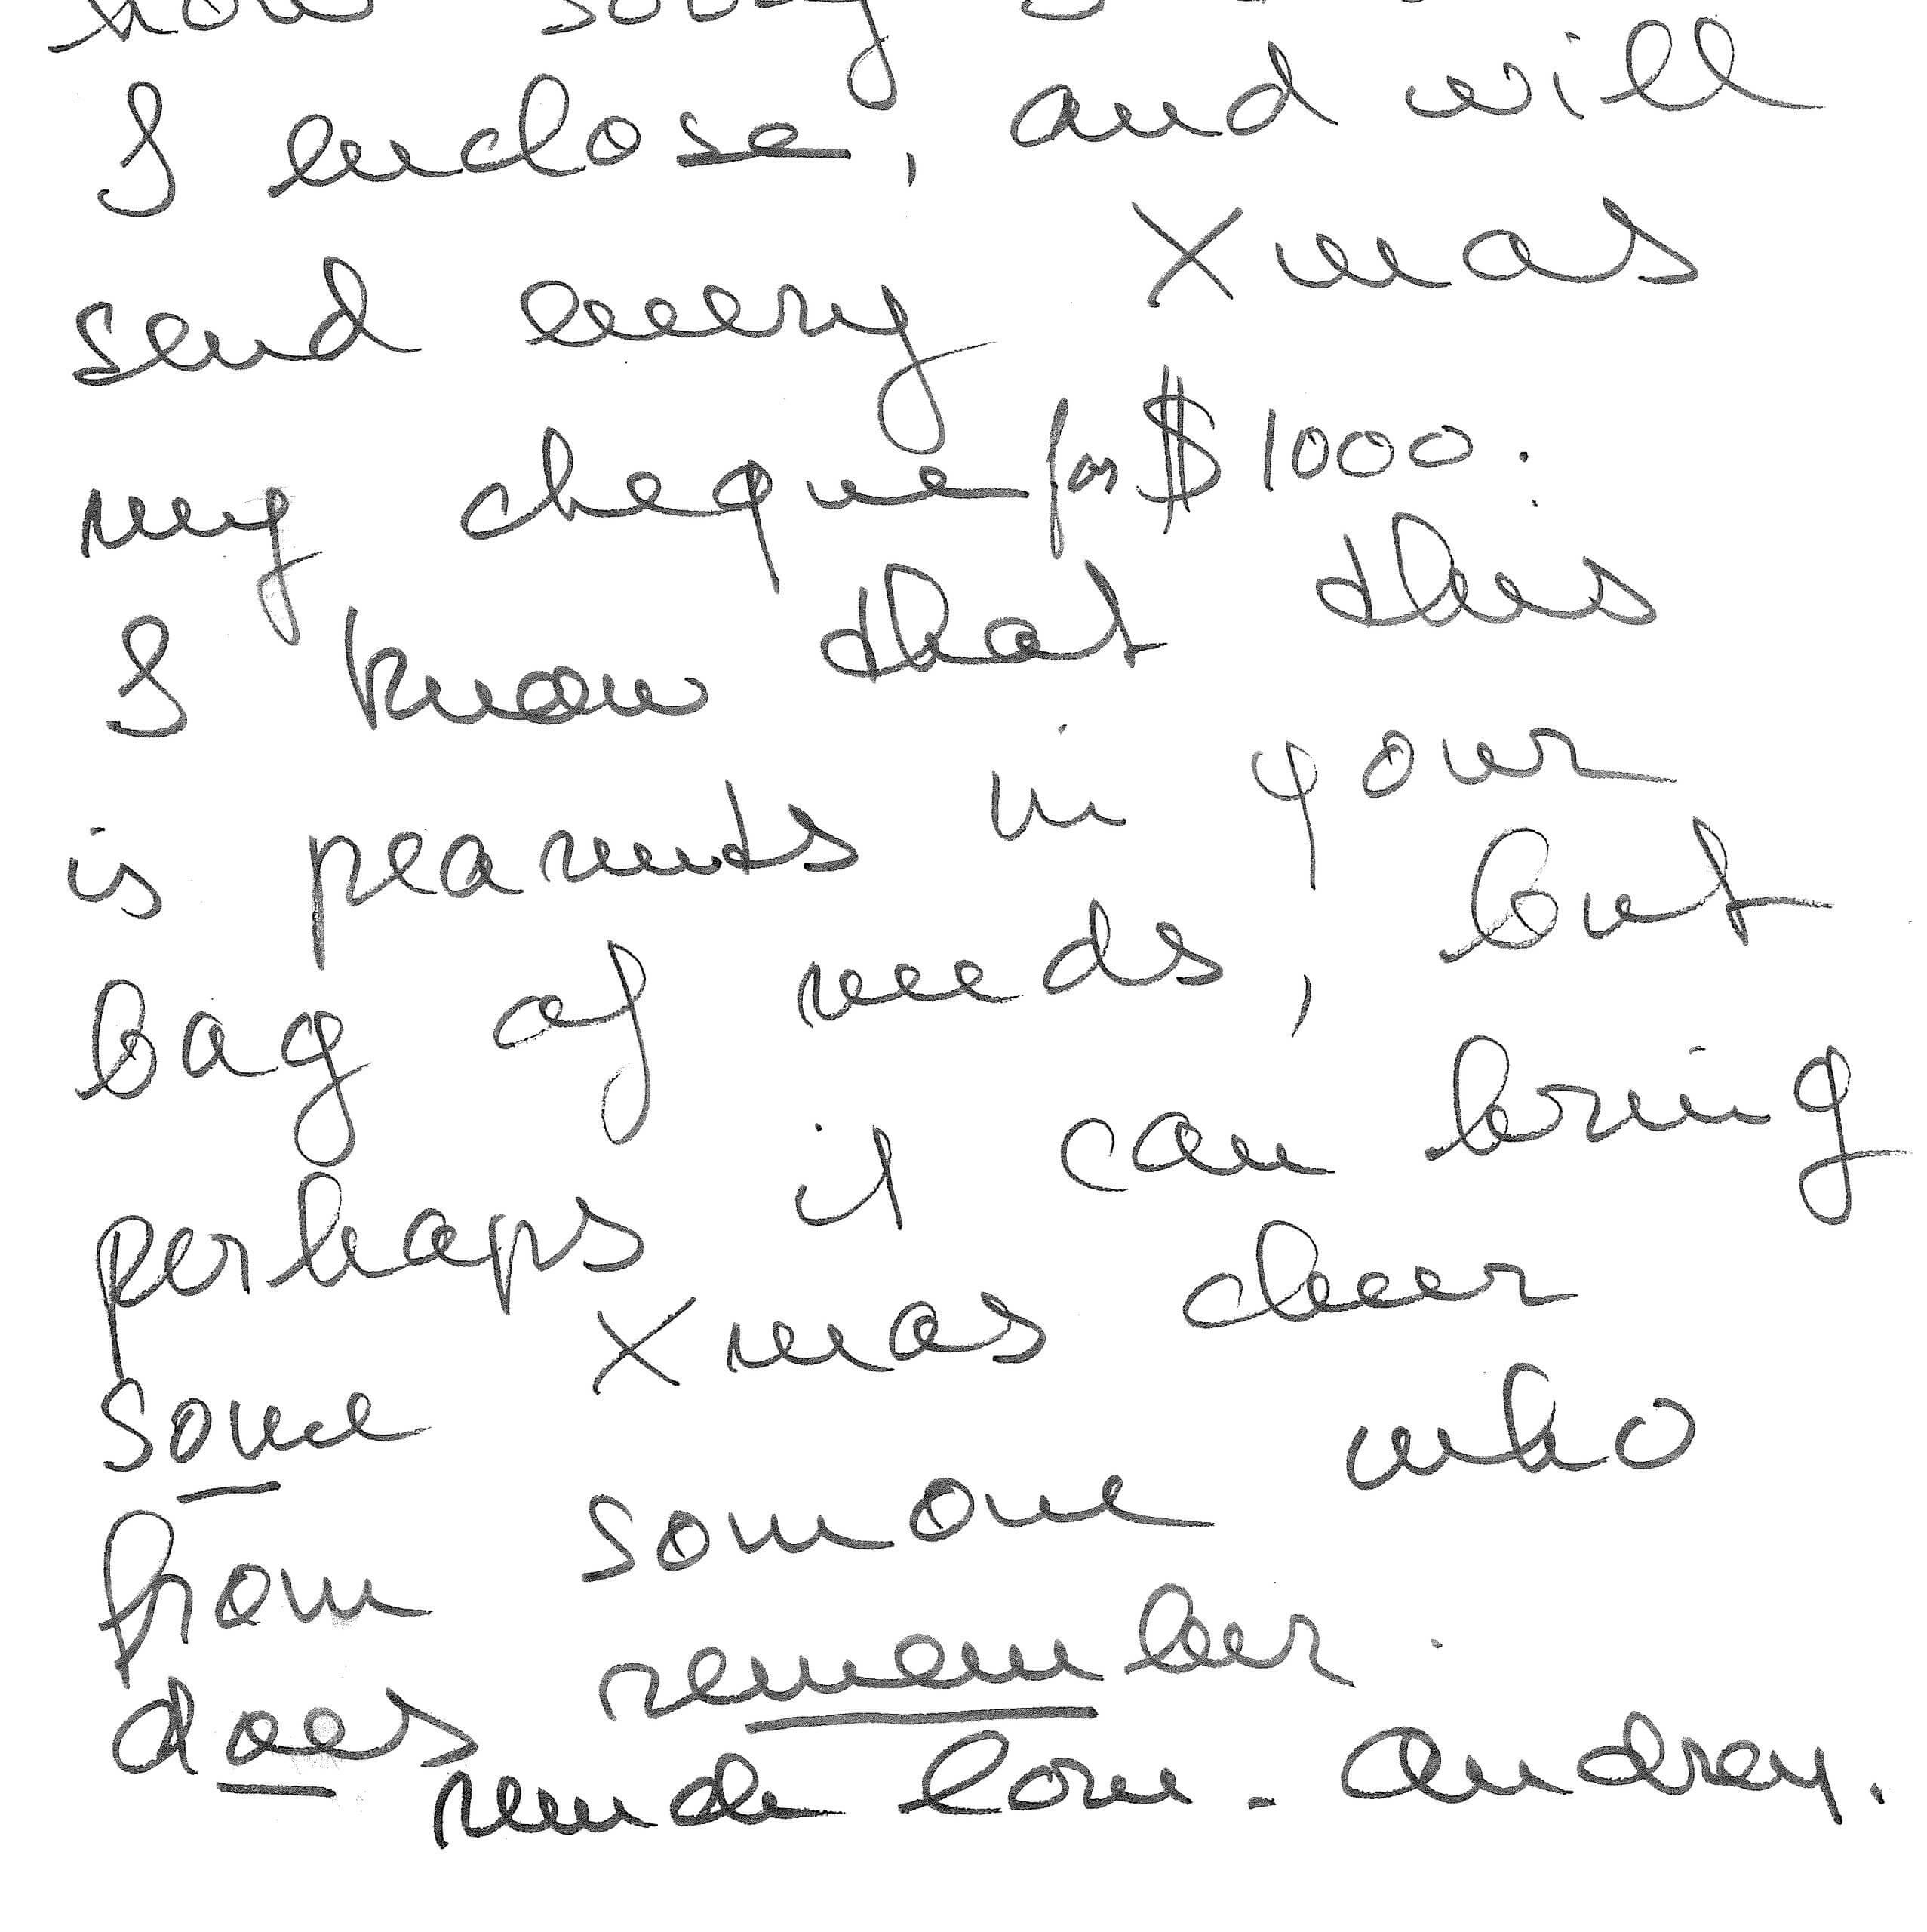 how sorry I
I enclose, and will
send every Xmas
my cheque for $1000.
I know that this
is peanuts in your
bag of needs, but
perhaps it can bring
some Xmas cheer
from someone who
does remember.
much love - Audrey.